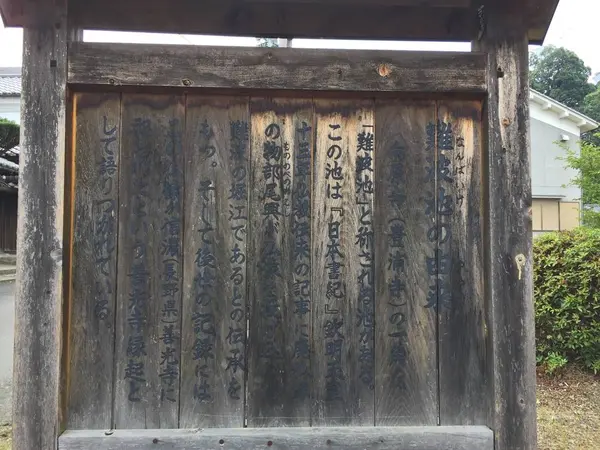 難波池の由来
なんばいけ
向原寺(豊浦寺)の一角に
「難波池」と称される池がある。
この池は「日本書紀」欽明天皇
十三年仏教伝来の記事に
の物部尾輿が
もののべのおこし
難波の堀江であるとの伝承を
もつ。そして後世の記録には
信濃(長野県)善光寺に
善光寺縁起と
して語りつがれている。